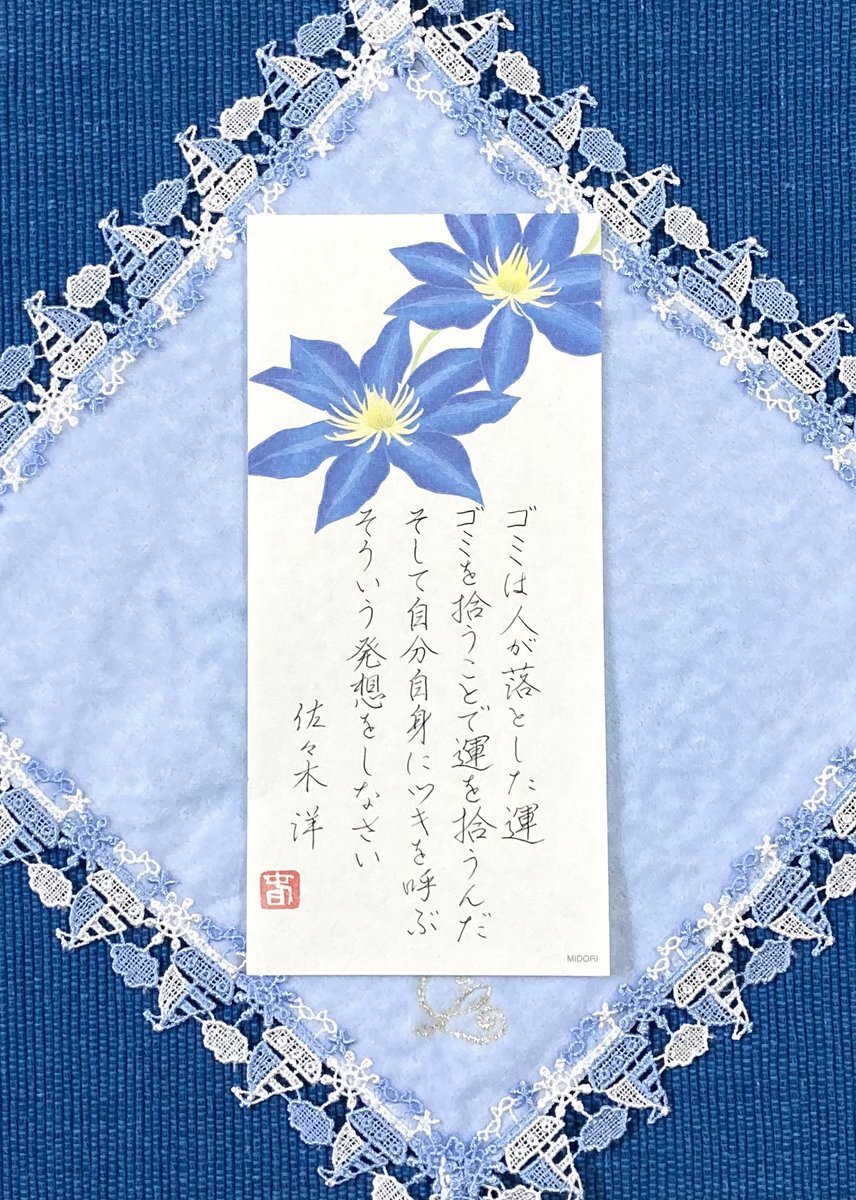 ゴミは人が落とした運
ゴミを拾うことで運を拾うんだ
そして自分自身にツキを呼ぶ
そういう発想をしなさい
佐々木洋
MIDORI